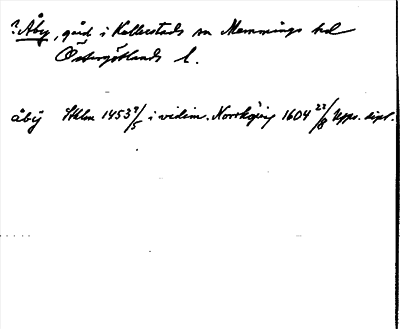 ? Åby, gård i Kallerstads sn Memmings hd
Östergötlands l.
åbÿ Sthlm 1453 9/5 i vidim. Norrköping 1604 22/8 Upps. dipl.